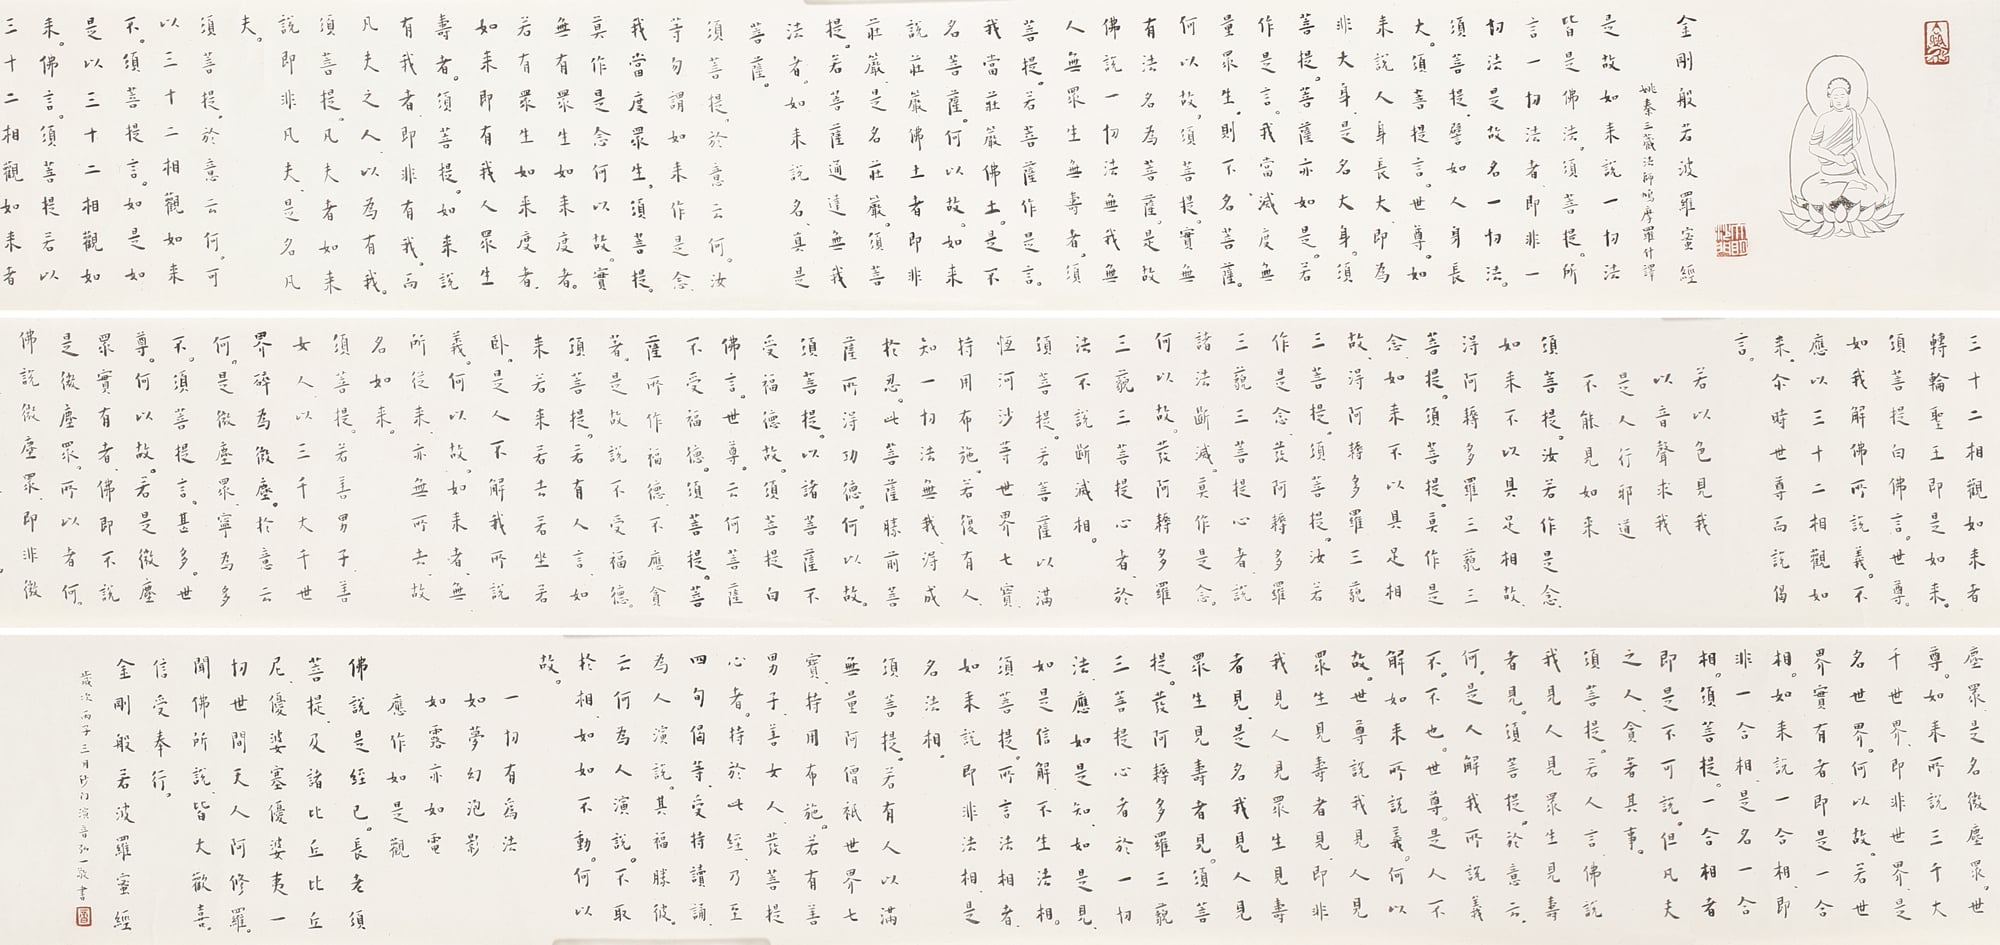 金剛般若波羅蜜經
姚秦三藏法師鳩摩羅什譯
是故如來說一切法
皆是佛法。須菩提。所
言一切法者、即非一
切法是故名一切法。
須菩提、譬如人身長
大。須菩提言。世尊。如
來說人身長大、即為
非大身、是名大身。須
菩提。菩薩亦如是。若
作是言。我當滅度無
量眾生。則不名菩薩。
何以故、須菩提。實無
有法名為菩薩。是故
佛說一切法無我無
人無眾生無壽者。須
菩提。若菩薩作是言。
我當莊嚴佛土。是不
名菩薩。何以故。如來
說莊嚴佛土者即非
莊嚴、是名莊嚴。須菩
提。若菩薩通達無我
法者。如來說名、真是
菩薩。
須菩提、於意云何。汝
等勿謂如來作是念、
我當度眾生。須菩提。
莫作是念何以故。實
無有眾生如來度者。
若有眾生如來度者、
如來即有我人眾生
壽者。須菩提。如來說
有我者、即非有我。而
凡夫之人、以為有我。
須菩提。凡夫者如來
說即非凡夫、是名凡
夫。
須菩提、於意云何。可
以三十二相觀如來
不。須菩提言。如是如
是以三十二相觀如
來。佛言。須菩提若以
三十二相觀如來者
三十二相觀如來者
轉輪聖王即是如來。
須菩提白佛言。世尊。
如我解佛所說義。不
應以三十二相觀如
來、尒時世尊而說偈
言。
若以色見我
以音聲求我
是人行邪道
不能見如來
須菩提、汝若作是念、
如來不以具足相故、
得阿耨多羅三藐三
菩提。須菩提。莫作是
念、如來不以具足相
故、得阿耨多羅三藐
三菩提。須菩提。汝若
作是念、發阿耨多羅
三藐三菩提心者、說
諸法斷滅。莫作是念。
何以故。發阿耨多羅
三藐三菩提心者、於
法不說斷滅相。
須菩提。若菩薩以滿
恒河沙等世界七寶、
持用布施。若復有人、
知一切法無我、得成
於忍。此菩薩勝前菩
薩所得功德。何以故。
須菩提。以諸菩薩不
受福德故。須菩提白
佛言。世尊。云何菩薩
不受福德。須菩提。菩
薩所作福德、不應貪
著。是故說不受福德。
須菩提。若有人言、如
來若來若去若坐若
臥。是人不解我所說
義。何以故。如來者、無
所從來、亦無所去、故
名如來。
須菩提。若善男子、善
女人、以三千大千世
界碎為微塵。於意云
何。是微塵眾、寧為多
不。須菩提言。甚多。世
尊。何以故。若是微塵
眾實有者、佛即不說
是微塵眾。所以者何。
佛說微塵眾、即非微
塵眾是名微塵眾。世
尊。如來所說三千大
千世界、即非世界、是
名世界。何以故。若世
界實有者即是一合
相。如來說一合相、即
非一合相、是名一合
相。須菩提。一合相者
即是不可說。但凡夫
之人、貪著其事。
須菩提。若人言佛說
我見人見眾生見壽
者見。須菩提。於意云
何。是人解我所說義
不。不也。世尊。是人不
解如來所說義。何以
故。世尊說我見人見
眾生見壽者見、即非
我見人見眾生見壽
者見、是名我見人見
眾生見壽者見。須菩
提。發阿耨多羅三藐
三菩提心者於一切
法、應如是知、如是見、
如是信解、不生法相。
須菩提。所言法相者、
如來說即非法相、是
名法相。
須菩提。若有人以滿
無量阿僧祇世界七
寶、持用布施。若有善
男子、善女人、發菩提
心者。持於此經、乃至
四句偈等、受持讀誦、
為人演說。其福勝彼。
云何為人演說。不取
於相、如如不動。何以
故。
一切有為法
如夢幻泡影
如露亦如電
應作如是觀
佛說是經已。長老須
菩提、及諸比丘比丘
尼、優婆塞優婆夷一
切世間天人阿修羅。
聞佛所說、皆大歡喜。
信受奉行。
金剛般若波羅蜜經
歲次丙子三月沙門演音弘一敬書